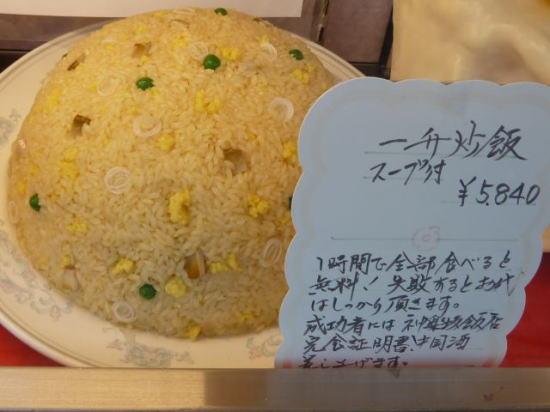 一升炒飯
スープ付
¥5,840
1時間で全部食べると
無料！失敗するとお代
はしっかり頂きます。
成功者には神楽坂飯店
完食証明書、中国酒
差し上げます。